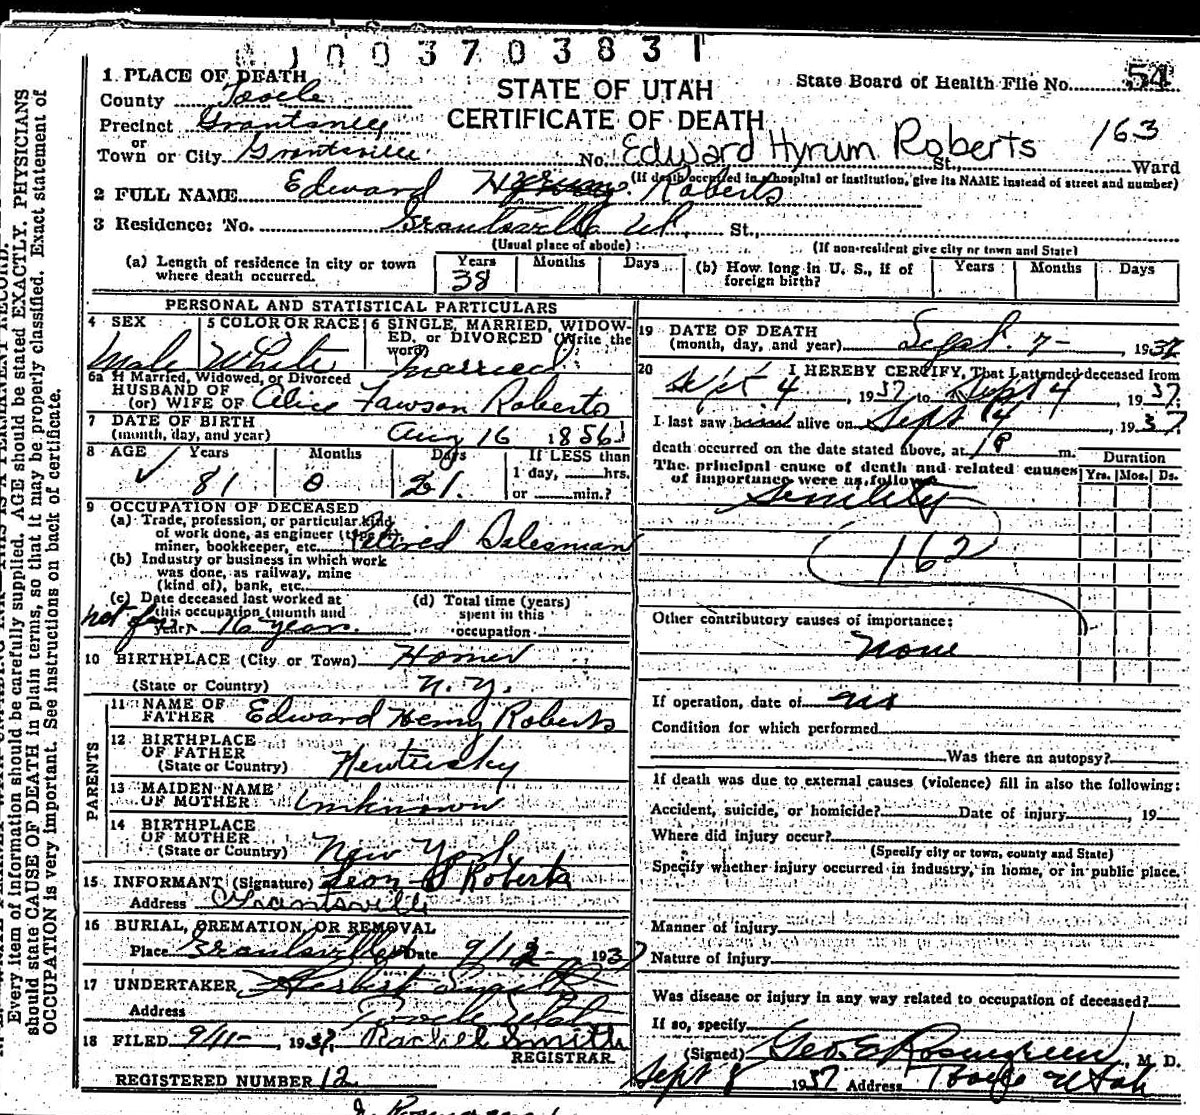 1003703831
1 PLACE OF DEATH
County Tooele
Precinct Grantsville
or
Town or City Grantsville
STATE OF UTAH
CERTIFICATE OF DEATH
State Board of Health File No. 54
No. Edward Hyrum Roberts St., Ward
163
(If death occurred in a hospital or institution, give its NAME instead of street and number)
2 FULL NAME Edward Hyrum Roberts
3 Residence: No. Grantsville Ut. St.,
(Usual place of abode)
(If non-resident give city or town and State)
(a) Length of residence in city or town
where death occurred.
Years Months Days
38
(b) How long in U. S., if of
foreign birth?
Years Months Days
PERSONAL AND STATISTICAL PARTICULARS
4 SEX
Male
5 COLOR OR RACE
White
6 SINGLE, MARRIED, WIDOW-
ED, or DIVORCED (Write the
word)
Married
6a If Married, Widowed, or Divorced
HUSBAND OF
(or) WIFE OF Alice Fawson Roberts
7 DATE OF BIRTH
(month, day, and year) Aug 16 1856
8 AGE Years Months Days
81 0 21
If LESS than
1 day, hrs.
or min.?
9 OCCUPATION OF DECEASED
(a) Trade, profession, or particular kind
of work done, as engineer (type of
miner, bookkeeper, etc. Retired Salesman
(b) Industry or business in which work
was done, as railway, mine
(kind of), bank, etc.
(c) Date deceased last worked at
this occupation (month and
year) not for 16 years.
(d) Total time (years)
spent in this
occupation.
10 BIRTHPLACE (City or Town) Homer
(State or Country) N. Y.
PARENTS
11 NAME OF
FATHER Edward Henry Roberts
12 BIRTHPLACE
OF FATHER
(State or Country) Kentucky
13 MAIDEN NAME
OF MOTHER Unknown
14 BIRTHPLACE
OF MOTHER
(State or Country) New York
15 INFORMANT (Signature) Leon Roberts
Address Grantsville
16 BURIAL, CREMATION, OR REMOVAL
Place Grantsville Date 9/12 1937
17 UNDERTAKER Herbert Smith
Address Tooele Utah
18 FILED 9/11- , 1937, Rachel Smith
REGISTRAR.
REGISTERED NUMBER 12
19 DATE OF DEATH
(month, day, and year) Sept. 7- , 1937
20 I HEREBY CERTIFY, That I attended deceased from
Sept 4 , 1937 to Sept 4 , 1937.
I last saw him alive on Sept 4 , 1937.
death occurred on the date stated above, at 1 P m.
The principal cause of death and related causes
of importance were as follows:
Duration
Yrs. Mos. Ds.
Senility
162
Other contributory causes of importance:
None
If operation, date of no
Condition for which performed
Was there an autopsy?
If death was due to external causes (violence) fill in also the following:
Accident, suicide, or homicide? Date of injury , 19
Where did injury occur?
(Specify city or town, county and State)
Specify whether injury occurred in industry, in home, or in public place.
Manner of injury
Nature of injury
Was disease or injury in any way related to occupation of deceased?
If so, specify
(Signed) Geo. E Rosengreen , M. D.
Sept 8 1937 Address Tooele Utah
Every item of information should be carefully supplied. AGE should be stated EXACTLY. PHYSICIANS
should state CAUSE OF DEATH in plain terms, so that it may be properly classified. Exact statement of
OCCUPATION is very important. See instructions on back of certificate.